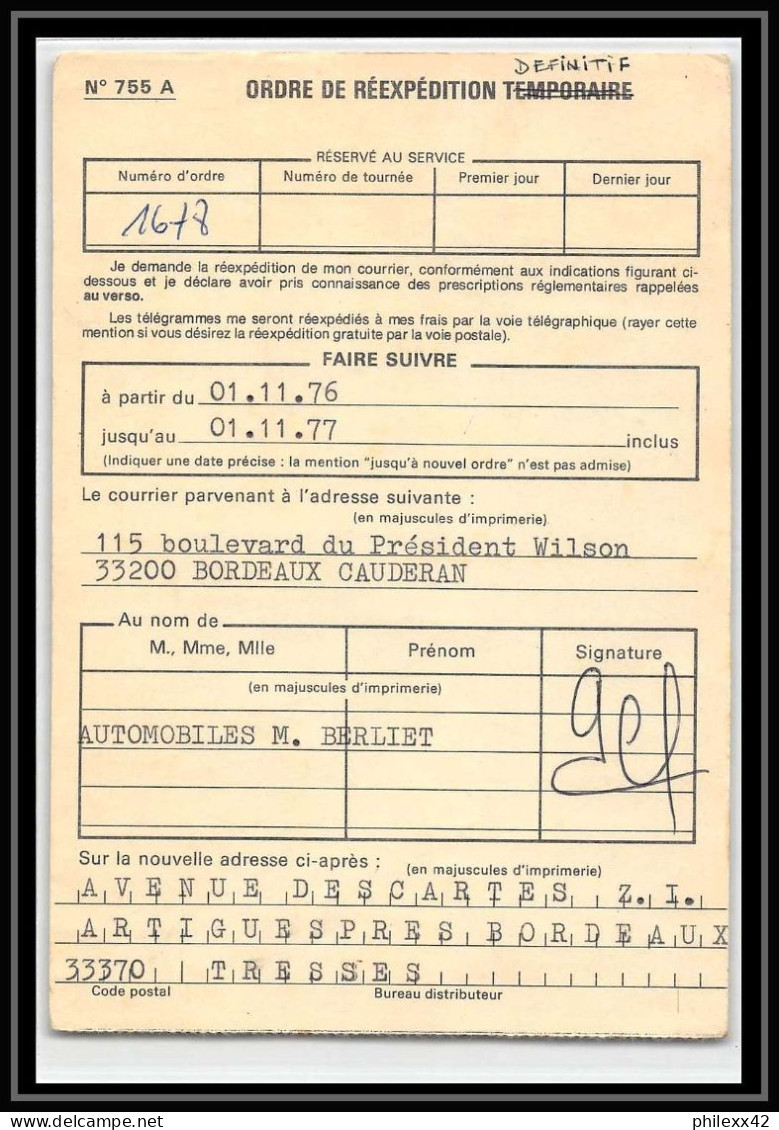 DEFINITIF
N° 755 A ORDRE DE RÉEXPÉDITION TEMPORAIRE
RÉSERVÉ AU SERVICE
Numéro d'ordre Numéro de tournée Premier jour Dernier jour
1678
Je demande la réexpédition de mon courrier, conformément aux indications figurant ci-
dessous et je déclare avoir pris connaissance des prescriptions réglementaires rappelées
au verso.
Les télégrammes me seront réexpédiés à mes frais par la voie télégraphique (rayer cette
mention si vous désirez la réexpédition gratuite par la voie postale).
FAIRE SUIVRE
à partir du 01.11.76
jusqu'au 01.11.77 inclus
(Indiquer une date précise : la mention "jusqu'à nouvel ordre" n'est pas admise)
Le courrier parvenant à l'adresse suivante :
(en majuscules d'imprimerie)
115 boulevard du Président Wilson
33200 BORDEAUX CAUDERAN
Au nom de
M., Mme, Mlle Prénom Signature
(en majuscules d'imprimerie)
AUTOMOBILES M. BERLIET
Sur la nouvelle adresse ci-après : (en majuscules d'imprimerie)
AVENUE DESCARTES Z.I.
ARTIGUES PRES BORDEAUX
33370 TRESSES
Code postal Bureau distributeur
philexx42